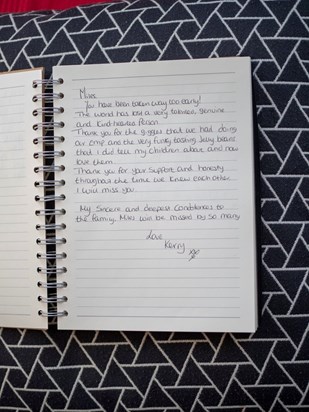 Miles,
You have been taken way too early!
The world has lost a very talented, genuine
and kind-hearted Person.
Thank you for the giggles that we had doing
our CMP and the very funky tasting Jelly beans
that I did tell my Children about and now
love them.
Thank you for your Support and honesty
throughout the time we knew each other
I will miss you.
My Sincere and deepest Condolences to
the family, Miles will be missed by so many
Love
Kerry